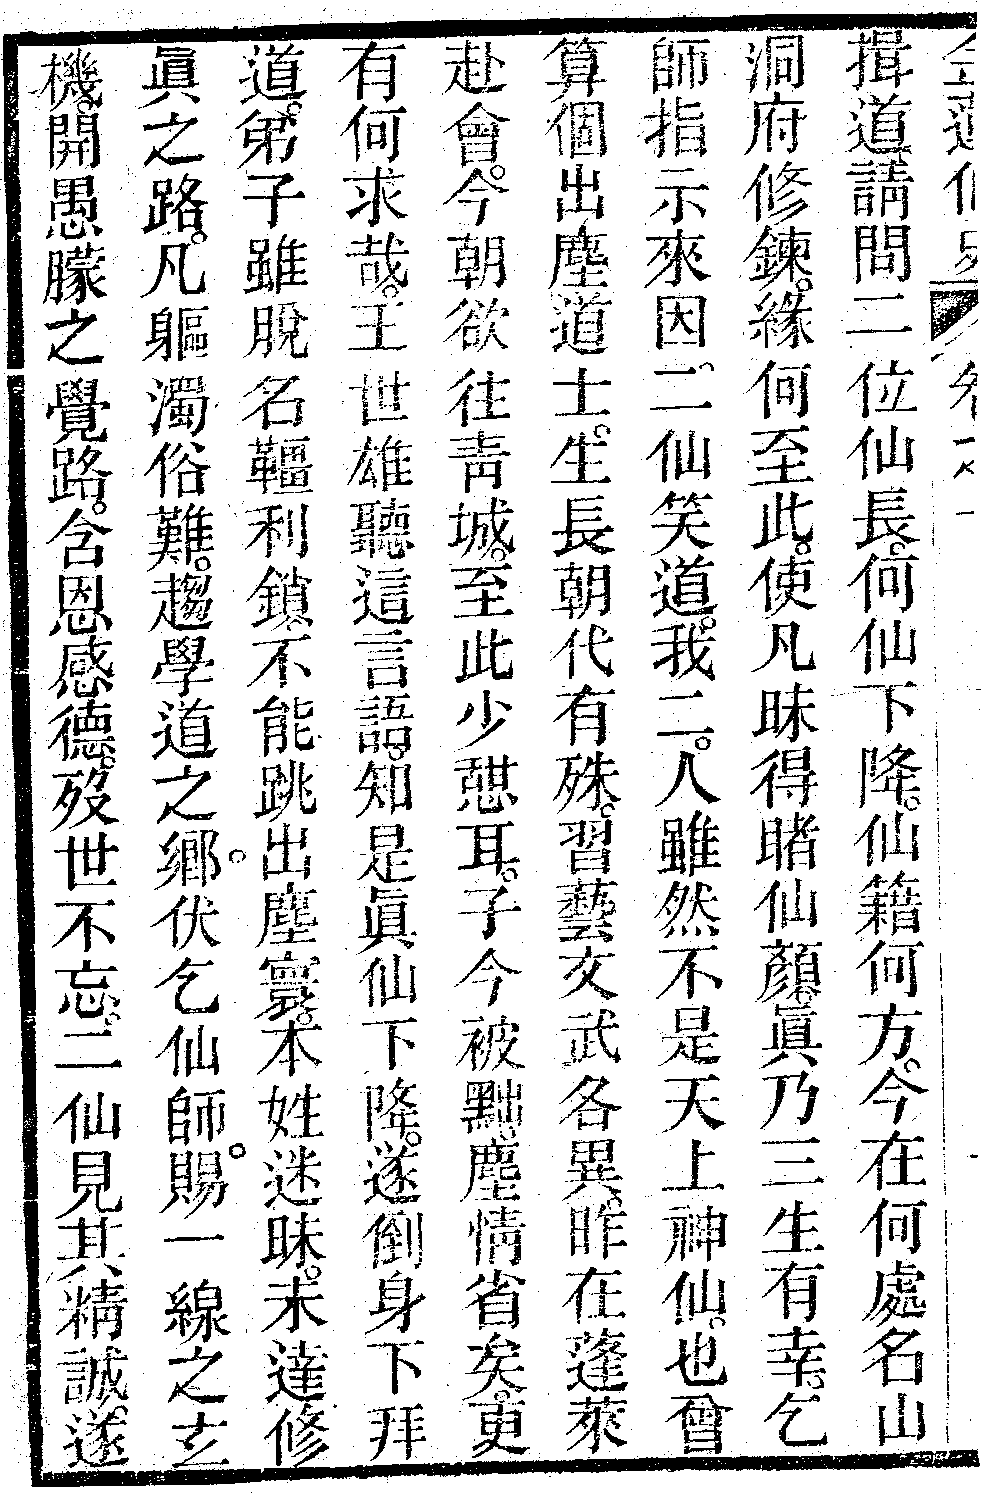 揖道請問二位仙長何仙下降仙籍何方今在何處名山
洞府修鍊緣何至此使凡昧得睹仙顏眞乃三生有幸乞
師指示來因二仙笑道我二人雖然不是天上神仙也曾
算個出塵道士生長朝代有殊習藝文武各異昨在蓬萊
赴會今朝欲往青城至此少憇耳子今被黜塵情省矣更
有何求哉王世雄聽這言語知是眞仙下降遂倒身下拜
道弟子雖脫名韁利鎖不能跳出塵寰本姓迷昧未達修
眞之路凡軀濁俗難趨學道之鄉伏乞仙師賜一線之玄
機開愚矇之覺路含恩感德歿世不忘二仙見其精誠遂